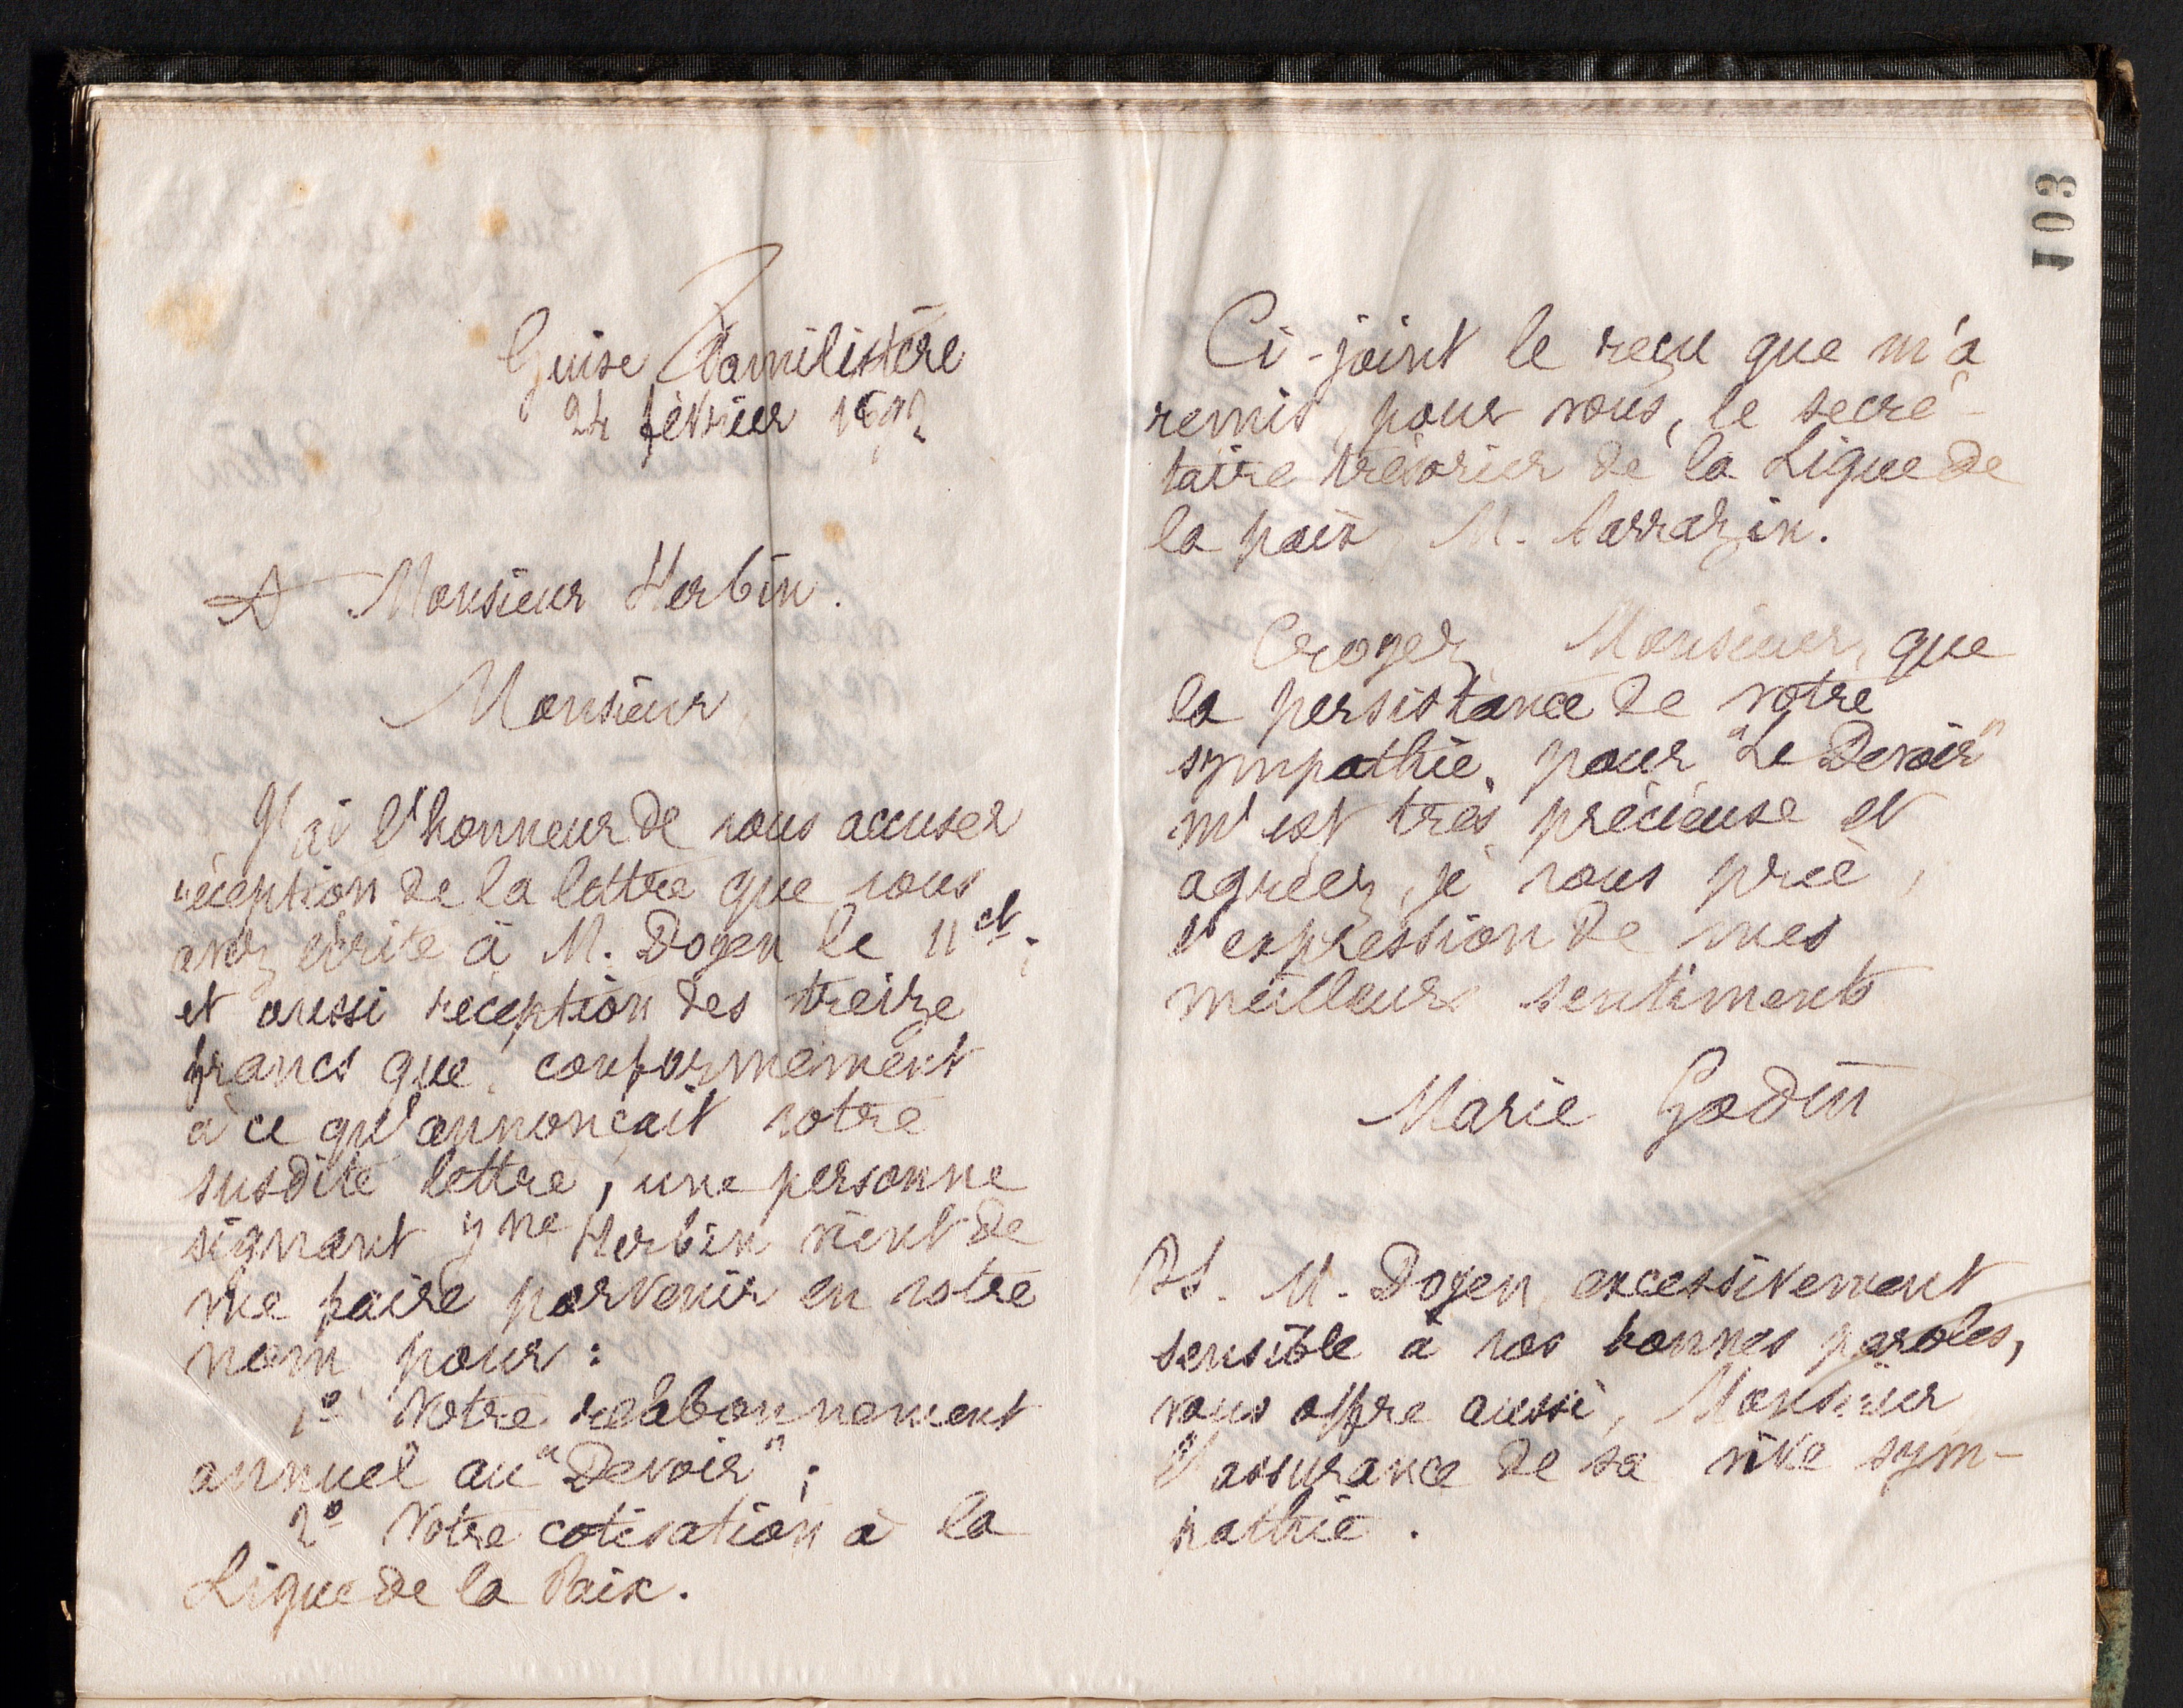 Guise Familistère
24 février 1892
A Monsieur Herbin.
Monsieur,
J'ai l'honneur de vous accuser
réception de la lettre que vous
avez écrite à M. Doyen le 11 ct;
et aussi réception des treize
francs que, conformément
à ce qu'annonçait votre
susdite lettre, une personne
signant Herbin vient de
me faire parvenir en votre
nom pour :
1º Votre réabonnement
annuel au "Devoir" ;
2º Votre cotisation à la
Ligue de la Paix.
103
Ci-joint le reçu que m'a
remis, pour vous, le secré-
taire trésorier de la Ligue de
la paix, M. Sarrazin.
Croyez, Monsieur, que
la persistance de votre
sympathie, pour "Le Devoir"
m'est très précieuse et
agréez, je vous prie,
l'expression de mes
meilleurs sentiments
Marie Godin
PS. M. Doyen, excessivement
sensible à vos bonnes paroles,
vous offre aussi, Monsieur
l'assurance de sa vive sym-
pathie.